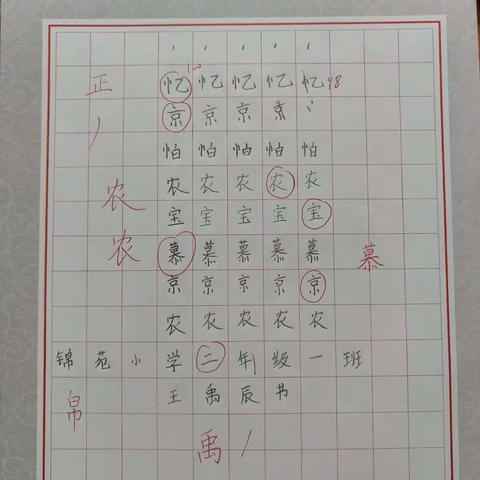 正 忆 忆 忆 忆 忆 98
京 京 京 京
怕 怕 怕 怕 怕
农 农 农 农 农 农
宝 宝 宝 宝 宝
农 慕 慕 慕 慕 慕 慕
京 京 京 京 京
农 农 农 农 农
锦 苑 小 学 二 年 级 一 班
帛 王 禹 辰 书
禹